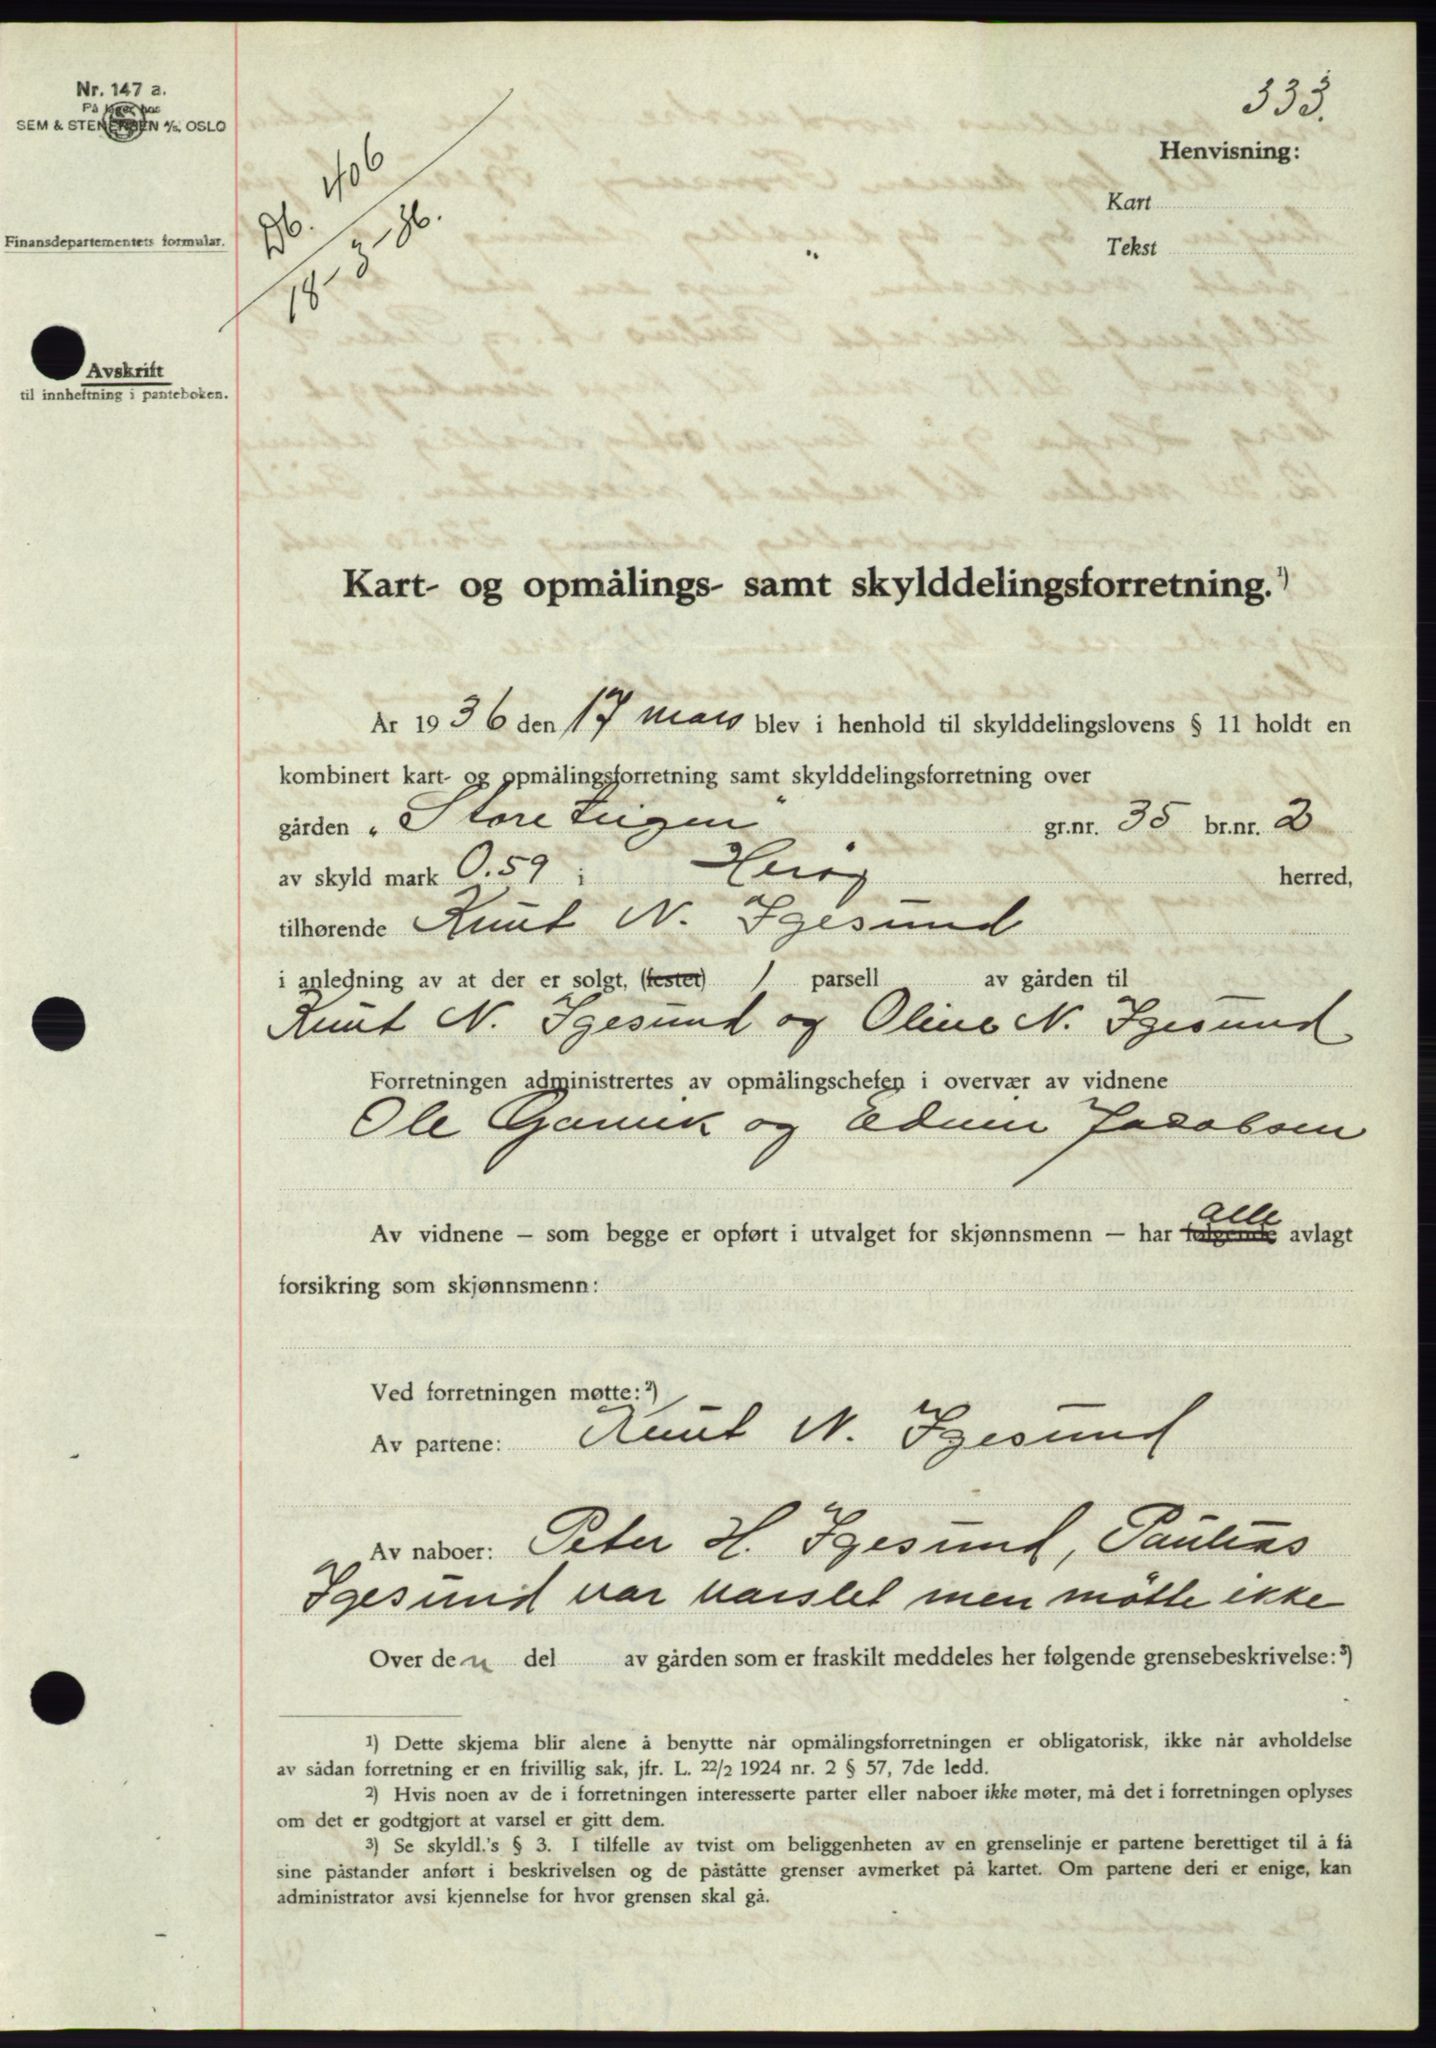 333.
Nr. 147 a.
På lager hos
SEM & STENERSEN A/S, OSLO
Finansdepartementets formular.
Db. 406
18-3-36.
Henvisning:
Kart
Tekst
Avskrift
til innheftning i panteboken.
Kart- og opmålings- samt skylddelingsforretning.¹)
År 1936 den 17 mars blev i henhold til skylddelingslovens § 11 holdt en
kombinert kart- og opmålingsforretning samt skylddelingsforretning over
gården „Store tuigen" gr.nr. 35 br.nr. 2
av skyld mark 0.59 i Herøy herred,
tilhørende Knut N. Igesund
i anledning av at der er solgt, (festet) 1 parsell av gården til
Knut N. Igesund og Oline N. Igesund
Forretningen administrertes av opmålingschefen i overvær av vidnene
Ole Gamik og Edvin Jacobsen
Av vidnene – som begge er opført i utvalget for skjønnsmenn – har følgende alle avlagt
forsikring som skjønnsmenn:
Ved forretningen møtte:²)
Av partene: Knut N. Igesund
Av naboer: Peter H. Igesund, Paulus
Igesund var varslet men møtte ikke
Over den del av gården som er fraskilt meddeles her følgende grensebeskrivelse:³)
¹) Dette skjema blir alene å benytte når opmålingsforretningen er obligatorisk, ikke når avholdelse
av sådan forretning er en frivillig sak, jfr. L. 22/2 1924 nr. 2 § 57, 7de ledd.
²) Hvis noen av de i forretningen interesserte parter eller naboer ikke møter, må det i forretningen oplyses
om det er godtgjort at varsel er gitt dem.
³) Se skyldl.'s § 3. I tilfelle av tvist om beliggenheten av en grenselinje er partene berettiget til å få
sine påstander anført i beskrivelsen og de påståtte grenser avmerket på kartet. Om partene deri er enige, kan
administrator avsi kjennelse for hvor grensen skal gå.